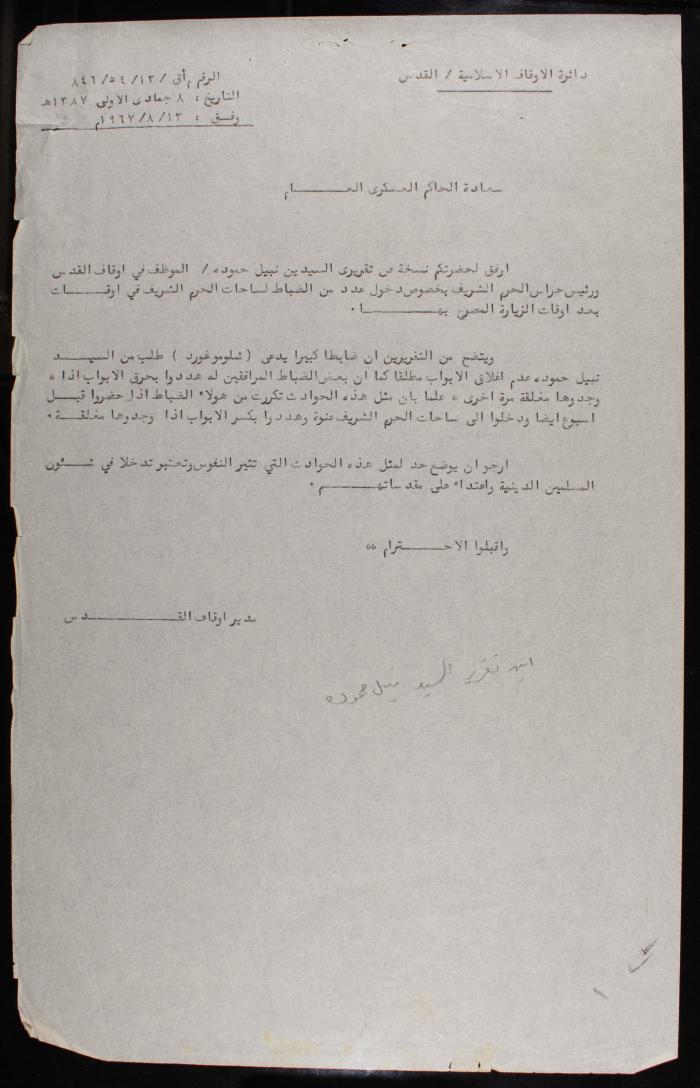 دائرة الاوقاف الاسلامية / القدس
الرقم م أق / ١٣/ ٥٤/ ٨٤٦
التاريخ : ٨ جمادى الاولى ١٣٨٧هـ
وفـق : ١٣/ ٨/ ١٩٦٧م
سعادة الحاكم العسكرى العـــــــام
ارفق لحضرتكم نسخة عن تقريرى السيدين نبيل حموده / الموظف في اوقاف القدس
ورئيس حراس الحرم الشريف بخصوص دخول عدد من الضباط لساحات الحرم الشريف في اوقـــات
بعد اوقات الزيارة المصرح بهـــــــا ٠
ويتضح من التقريرين ان ضابطا كبيرا يدعى ( شلوموغورد ) طلب من السيـــد
نبيل حموده عدم اغلاق الابواب مطلقا كما ان بعض الضباط المرافقين له هددوا بحرق الابواب اذا ،
وجدوها مغلقة مرة اخرى ، علما بان مثل هذه الحوادث تكررت من هولاء الضباط اذا حضروا قبـــل
اسبوع ايضا ودخلوا الى ساحات الحرم الشريف عنوة وهددوا بكسر الابواب اذا وجدوها مغلقـــة ٠
ارجو ان يوضع حد لمثل هذه الحوادث التي تثير النفوس وتعتبر تدخلا في شـــئون
المسلمين الدينية واعتداء على مقدساتهـــــــم ٠
واقبلوا الاحـــــــترام ،،
مدير اوقاف القـــــــدس
اين تقرير السيد نبيل حموده